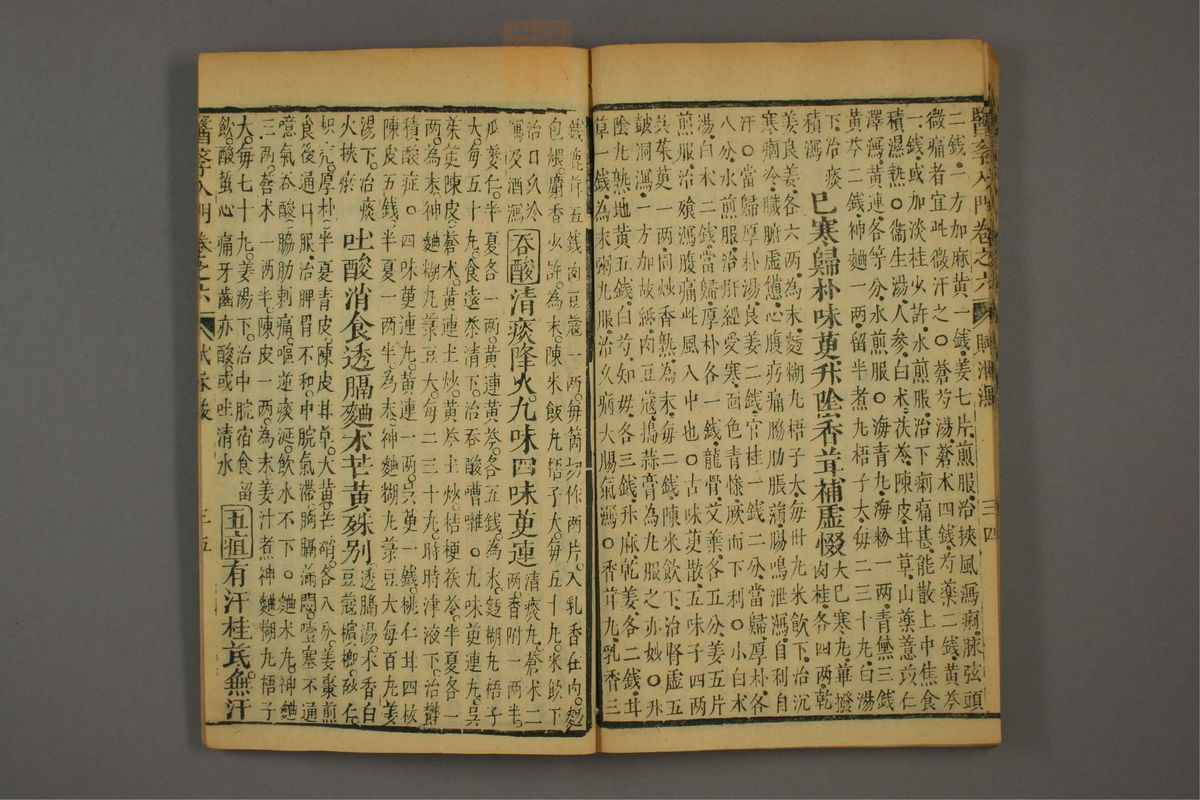 醫學入門卷之六 賦 泄瀉 三四
二錢二方加麻黃一錢姜七片煎服治挾風瀉痢脉弦頭
微痛者宜此微汗之○蒼芍湯蒼朮四錢芍藥二錢黃芩
一錢或加淡桂少許水煎服治下痢痛甚能散上中焦食
積濕熱○衞生湯人參白朮茯苓陳皮甘草山藥薏苡仁
澤瀉黃連各等分水煎服○海青丸海粉一兩青黛三錢
黃芩二錢神麯一兩留半煮丸梧子大每二三十丸白湯
下治痰
積瀉
巳寒歸朴味萸升陰香茸補虛惙
大巳寒丸蓽撥
肉桂各四兩乾
姜良姜各六兩為末麪糊丸梧子大每卅丸米飲下治沉
寒痼冷臟腑虛憊心腹疞痛脇肋脹滿腸鳴泄瀉自利自
汗○當歸厚朴湯良姜二錢官桂一錢二分當歸厚朴各
八分水煎服治肝經受寒面色青慘厥而下利○小白朮
湯白朮二錢當歸厚朴各一錢龍骨艾葉各五分姜五片
煎服治飱瀉腹痛此風入中也○古味萸散五味子四兩
吳茱萸一兩同炒香熟為末每二錢陳米飲下治腎虛五
皷洞瀉一方加故紙肉豆蔻搗蒜膏為丸服之亦妙○升
陰丸熟地黃五錢白芍知毋各三錢升麻乾姜各二錢甘
草一錢為末粥丸服治久病大腸氣瀉○香茸丸乳香三
錢鹿茸五錢肉豆蔻一兩每箇切作兩片入乳香在內麪
包煨麝香少許為末陳米飯丸梧子大每五十丸米飲下
治日久冷
瀉及酒瀉
吞酸
清痰降火丸味四味萸連
清痰丸蒼朮二
兩香附一兩半
瓜蔞仁半夏各一兩黃連黃芩各五錢為末麪糊丸梧子
大每五十丸食遠茶清下治吞酸嘈雜○九味萸連丸吳
茱萸陳皮蒼朮黃連土炒黃芩土炒桔梗茯苓半夏各一
兩為末神麯糊丸菉豆大每二三十丸時時津液下治欝
積酸症○四味萸連丸黃連一兩吳萸一錢桃仁廿四核
陳皮五錢半夏一兩半為末神麯糊丸菉豆大每百丸姜
湯下治痰
火挾瘀
吐酸消食透膈麯朮芒黃殊别
透膈湯木香白
豆蔻檳榔砂仁
枳壳厚朴半夏青皮陳皮甘草大黃芒硝各八分姜棗煎
食後通口服治脾胃不和中脘氣滯胸膈滿悶噎塞不通
噫氣吞酸脇肋刺痛嘔逆痰涎飲水不下○麯朮丸神麯
三兩蒼朮一兩半陳皮一兩為末姜汁煮神麯糊丸梧子
大每七十丸姜湯下治中脘宿食留
飲酸螫心痛牙齒亦酸或吐清水
五疸
有汗桂芪無汗
醫學入門 卷之六 賦 吞酸 三五